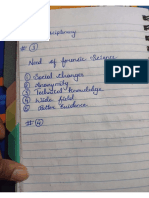 # ③
Need of forensic Science
① Social Changes
② Anonymity
③ Technical Knowledge
④ Wide field
⑤ Better Evidence
# ④